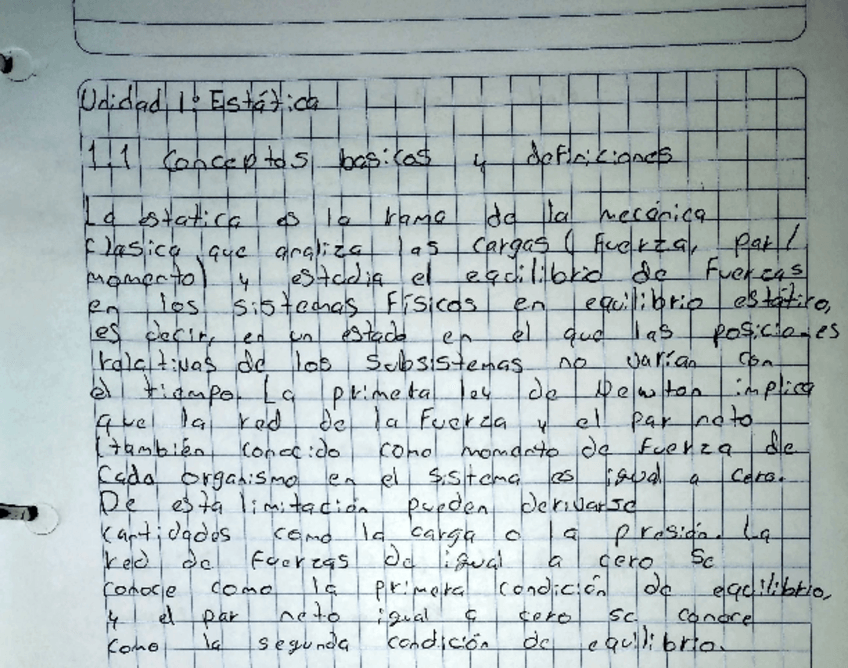 Unidad 1: Estática
1.1 Conceptos basicos y definiciones
La estatica es la rama de la mecánica
clasica que analiza las cargas (Fuerza, par/
momento) y estudia el equilibrio de Fuerzas
en los sistemas Físicos en equilibrio estático,
es decir, en un estado en el que las posiciones
relativas de los subsistemas no varían con
el tiempo. La primera ley de Newton implica
que la red de la Fuerza y el par neto
(también conocido como momento de fuerza de
cada organismo en el sistema es igual a cero.
De esta limitación pueden derivarse
cantidades como la carga o la presión. La
red de fuerzas de igual a cero se
conoce como la primera condición de equilibrio,
y el par neto igual a cero se conoce
como la segunda condición de equilibrio.